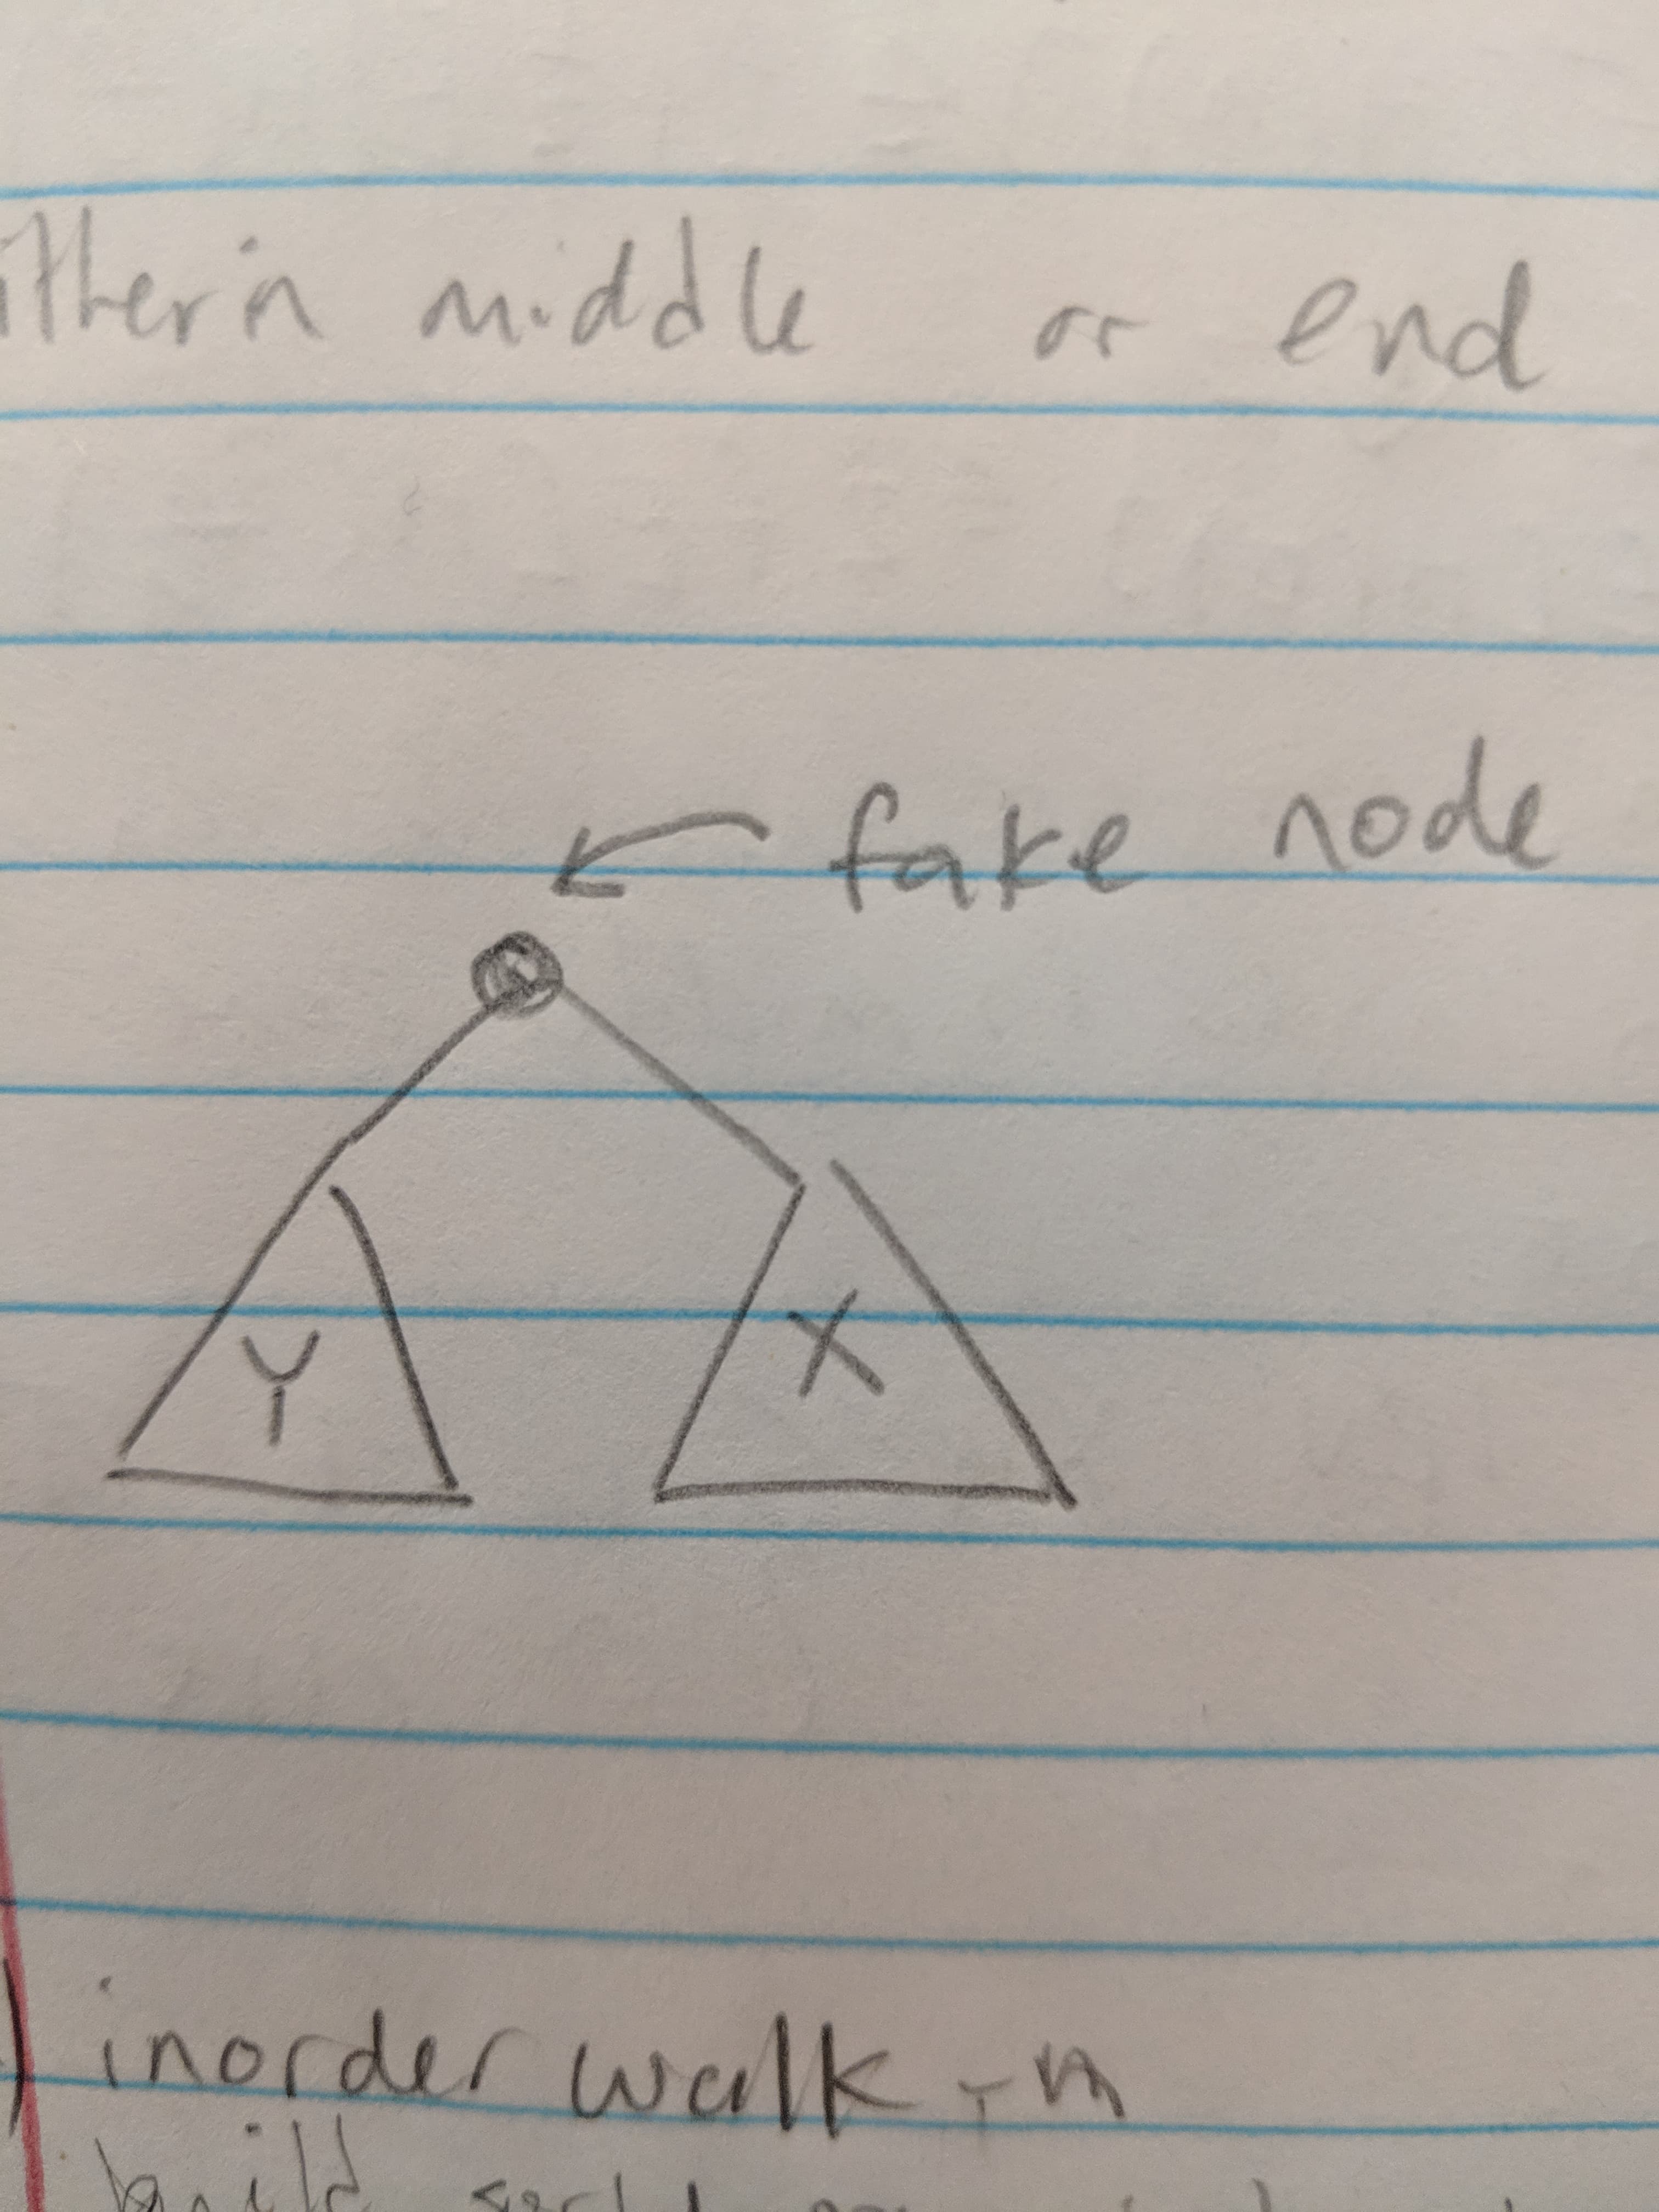 ither in middle or end
fake node
Y X
) inorder walk
build